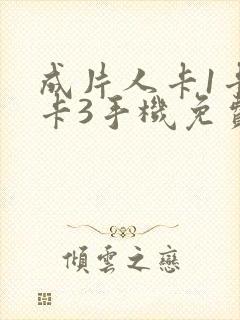 成片人卡1卡
卡3手機免費
傾雲之戀